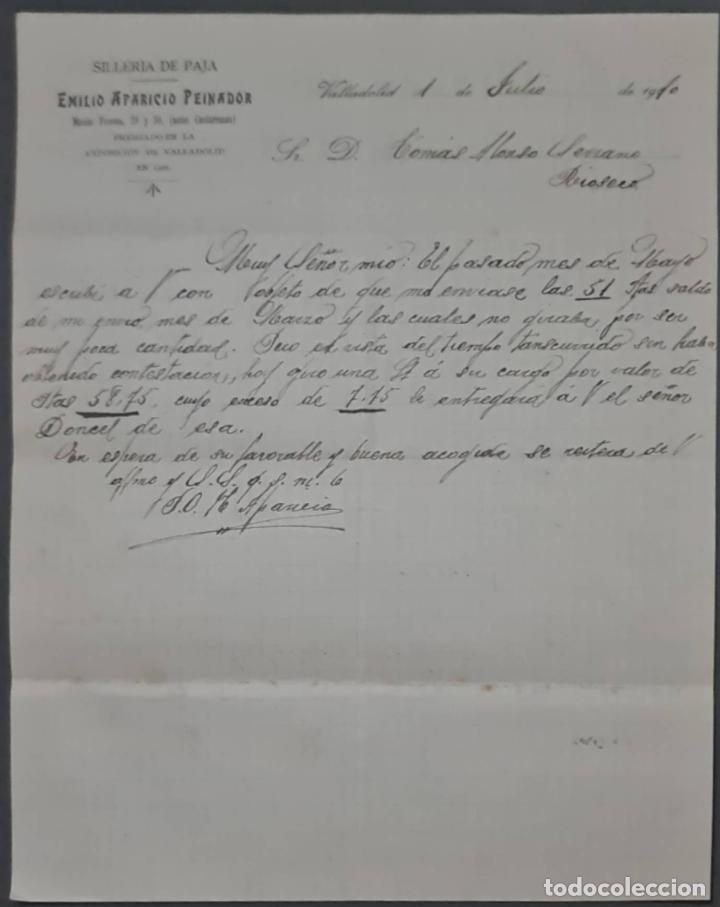 SILLERIA DE PAJA
EMILIO APARICIO PEINADOR
PREMIADO EN LA
EXPOSICIÓN DE VALLADOLID
EN
Valladolid 1 de Julio de 1910
Sr. D. Tomás Alonso Serrano
Rioseco
Muy Señor mio: El pasado mes de Mayo
escribi a V con objeto de que me enviase las 51 Ptas saldo
de mi envio mes de Marzo y las cuales no giraba, por ser
muy poca cantidad. Pero en vista del tiempo transcurrido sin haber
obtenido contestacion, hoy giro una L á su cargo por valor de
Ptas 58,75, cuyo exceso de 7.75 le entregará á V el señor
Doncel de esa.
En espera de su favorable y buena acogida se reitera de V
affmo y S. S. q. s. m. b
P.O. E Aparicio
todocoleccion